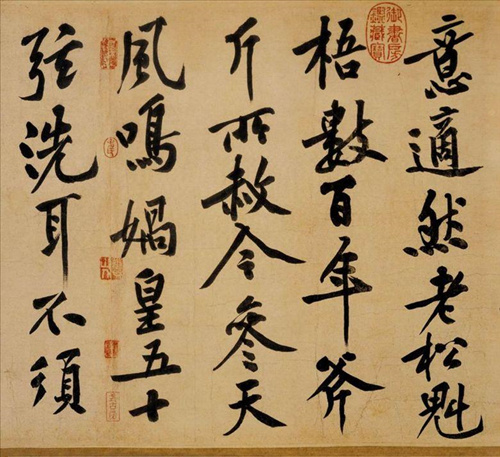 御書房鑑藏寶
意適然老松魁
梧數百年斧
斤所赦今參天
風鳴媧皇五十
弦洗耳不須